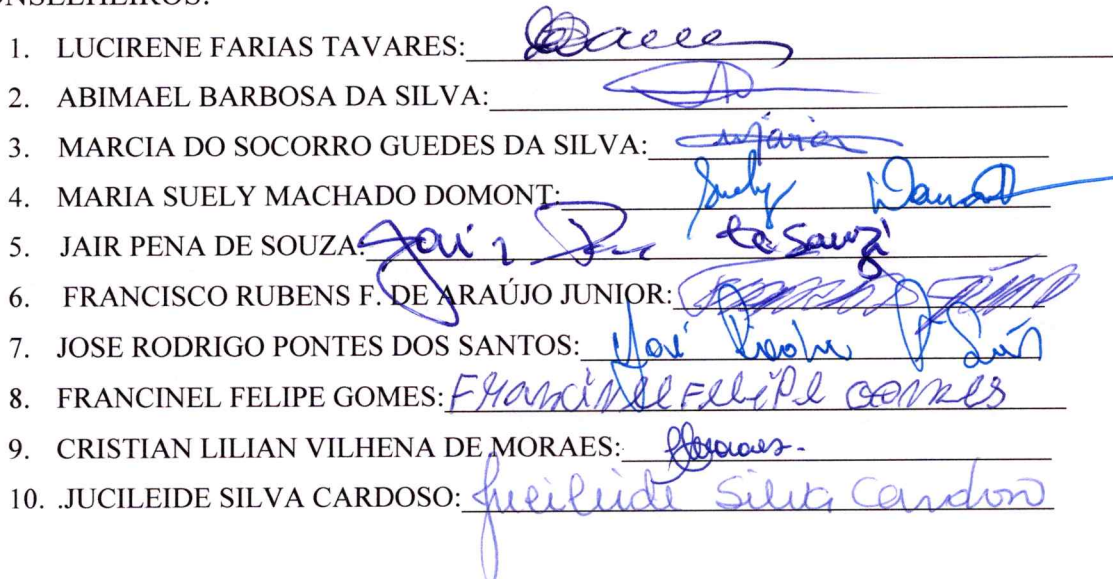 CONSELHEIROS:
1. LUCIRENE FARIAS TAVARES:
2. ABIMAEL BARBOSA DA SILVA:
3. MARCIA DO SOCORRO GUEDES DA SILVA:
4. MARIA SUELY MACHADO DOMONT: Suely Domont
5. JAIR PENA DE SOUZA: Jair de Souza
6. FRANCISCO RUBENS F. DE ARAÚJO JUNIOR:
7. JOSE RODRIGO PONTES DOS SANTOS: José
8. FRANCINEL FELIPE GOMES: Francinel Felipe Gomes
9. CRISTIAN LILIAN VILHENA DE MORAES:
10. .JUCILEIDE SILVA CARDOSO: Jucileide Silva Cardoso